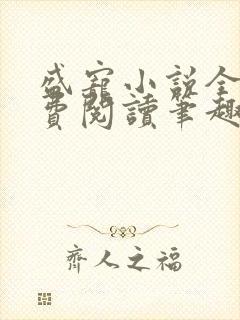 盛寵小說全
費閱讀筆趣
齊人之福